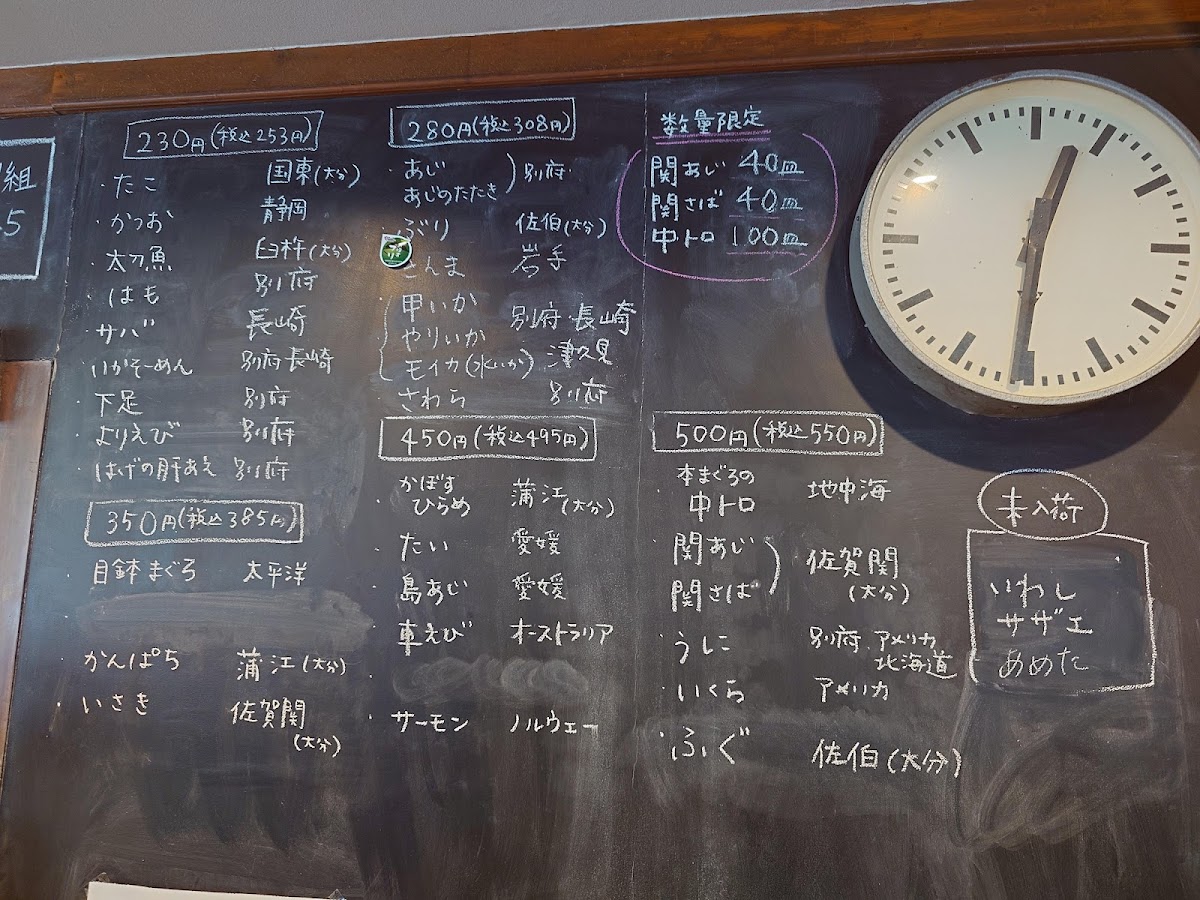 組
5
230円(税込253円)
・たこ 国東(大分)
・かつお 静岡
・太刀魚 臼杵(大分)
・はも 別府
・サバ 長崎
・いかそーめん 別府 長崎
・下足 別府
・よりえび 別府
・はげの肝あえ 別府
350円(税込385円)
・目鉢まぐろ 太平洋
・かんぱち 蒲江(大分)
・いさき 佐賀関
(大分)
280円(税込308円)
・あじ
あじのたたき 別府
ぶり 佐伯(大分)
さんま 岩手
甲いか 別府・長崎
やりいか
モイカ(水いか) 津久見
・さわら 別府
450円(税込495円)
・かぼす
ひらめ 蒲江(大分)
・たい 愛媛
・島あじ 愛媛
・車えび オーストラリア
・
・サーモン ノルウェー
数量限定
関あじ 40皿
関さば 40皿
中トロ 100皿
500円(税込550円)
・本まぐろの
中トロ 地中海
・関あじ
関さば 佐賀関
(大分)
・うに 別府 アメリカ
北海道
・いくら アメリカ
・ふぐ 佐伯(大分)
未入荷
いわし
サザエ
あめた